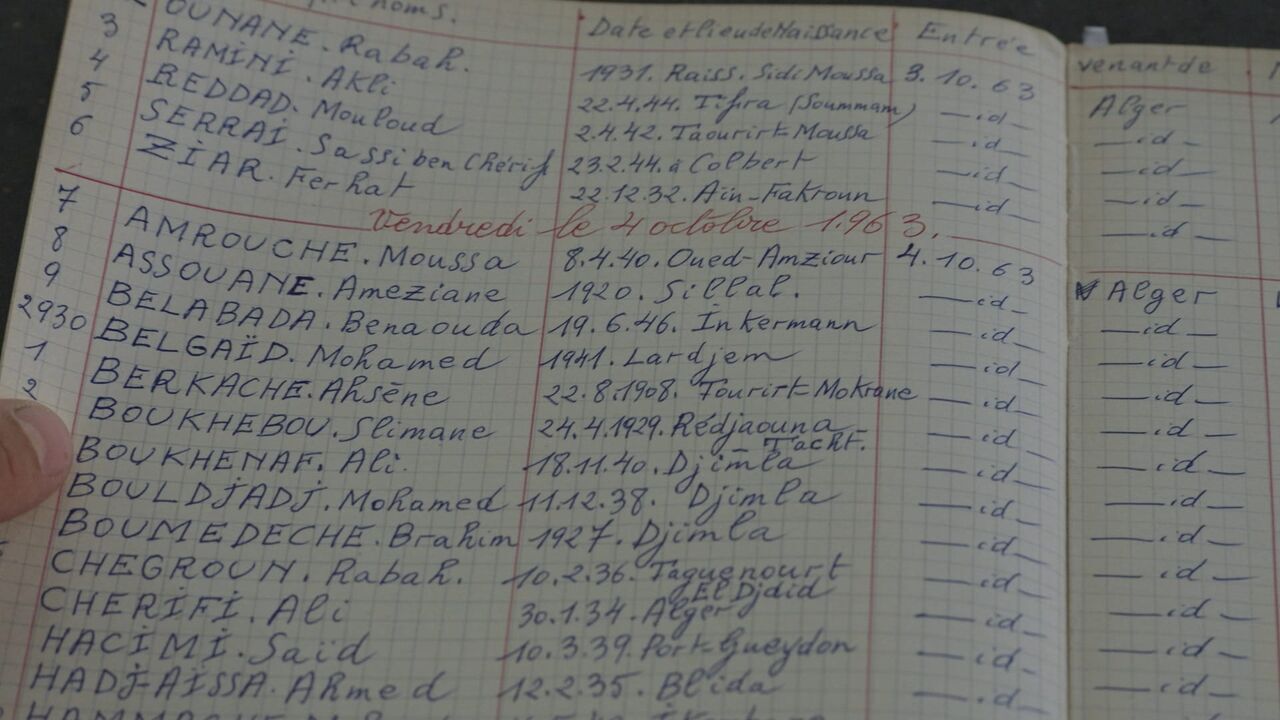 noms. Date et lieu de Naissance Entrée venant de
3 OUNANE. Rabah. 1931. Raiss. Sidi Moussa 3.10.63 Alger
4 RAMINI. Akli 22.4.44. Tifira (Soummam) —id— —id—
5 REDDAD. Mouloud 2.4.42. Taourirt Moussa —id— —id—
6 SERRAI. Sassi ben Chérif 23.2.44. à Colbert —id— —id—
ZIAR. Ferhat 22.12.32. Aïn-Fakroun —id— —id—
Vendredi le 4 octobre 1.963.
7 AMROUCHE. Moussa 8.4.40. Oued-Amziour 4.10.63 Alger
8 ASSOUANE. Ameziane 1920. Sillal. —id— —id—
9 BELABADA. Benaouda 19.6.46. Inkermann —id— —id—
2930 BELGAÏD. Mohamed 1941. Lardjem —id— —id—
1 BERKACHE. Ahsène 22.8.1908. Tourirt Mokrane —id— —id—
2 BOUKHEBOU. Slimane 24.4.1929. Rédjaouna Tacht. —id— —id—
BOUKHENAF. Ali. 18.11.40. Djimla —id— —id—
BOULDJADJ. Mohamed 11.12.38. Djimla —id— —id—
BOUMEDECHE. Brahim 1927. Djimla —id— —id—
CHEGROUN. Rabah. 10.2.36. Taguenourt El Djdid —id— —id—
CHERIFI. Ali 30.1.34. Alger —id— —id—
HACIMI. Saïd 10.3.39. Port-Gueydon —id— —id—
HADJ-AISSA. Ahmed 12.2.35. Blida —id— —id—